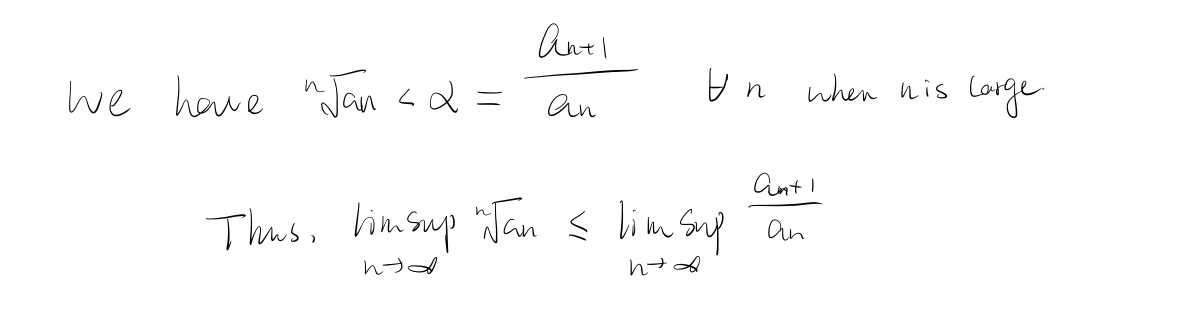 We have $\sqrt[n]{a_n} < \alpha = \frac{a_{n+1}}{a_n}$ ∀ n when n is large.
Thus, $\limsup_{n \to \infty} \sqrt[n]{a_n} \leq \limsup_{n \to \infty} \frac{a_{n+1}}{a_n}$